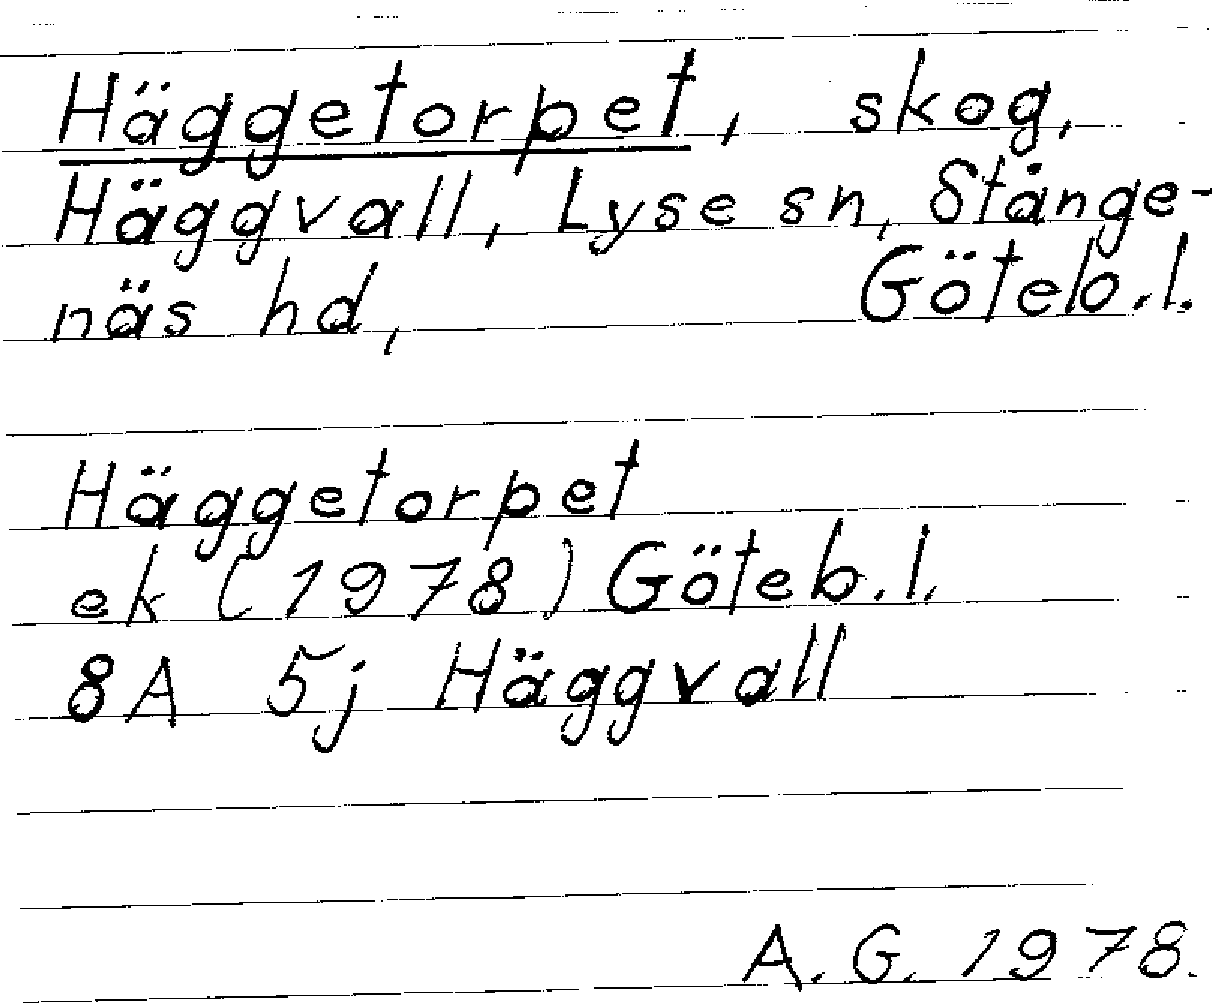 Häggetorpet, skog,
Häggvall, Lyse sn, Stånge-
näs hd, Göteb.l.
Häggetorpet
ek (1978) Göteb.l.
8A 5j Häggvall
A. G. 1978.